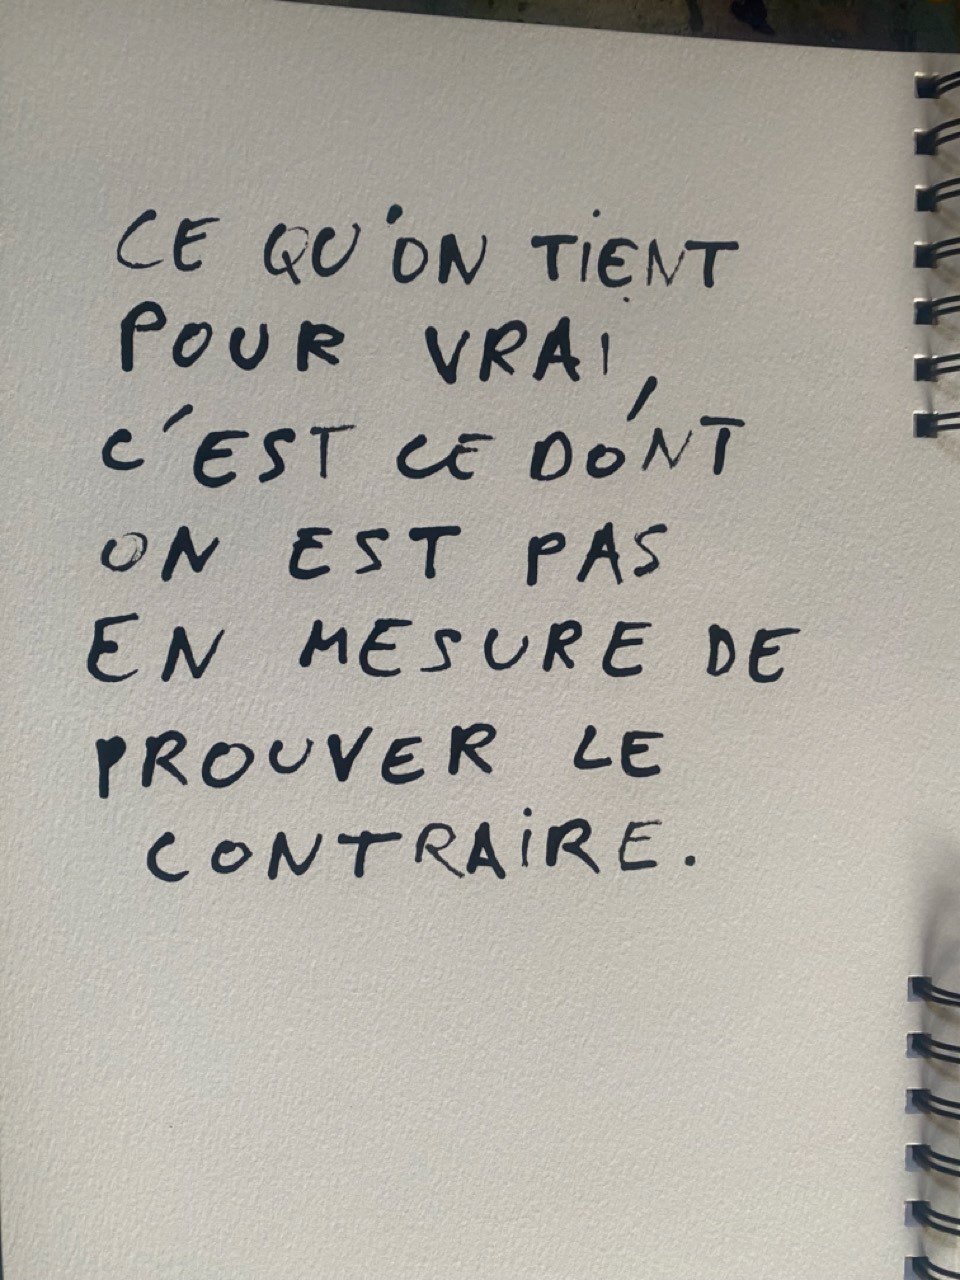 CE QU'ON TIENT
POUR VRAI,
C'EST CE DONT
ON EST PAS
EN MESURE DE
PROUVER LE
CONTRAIRE.